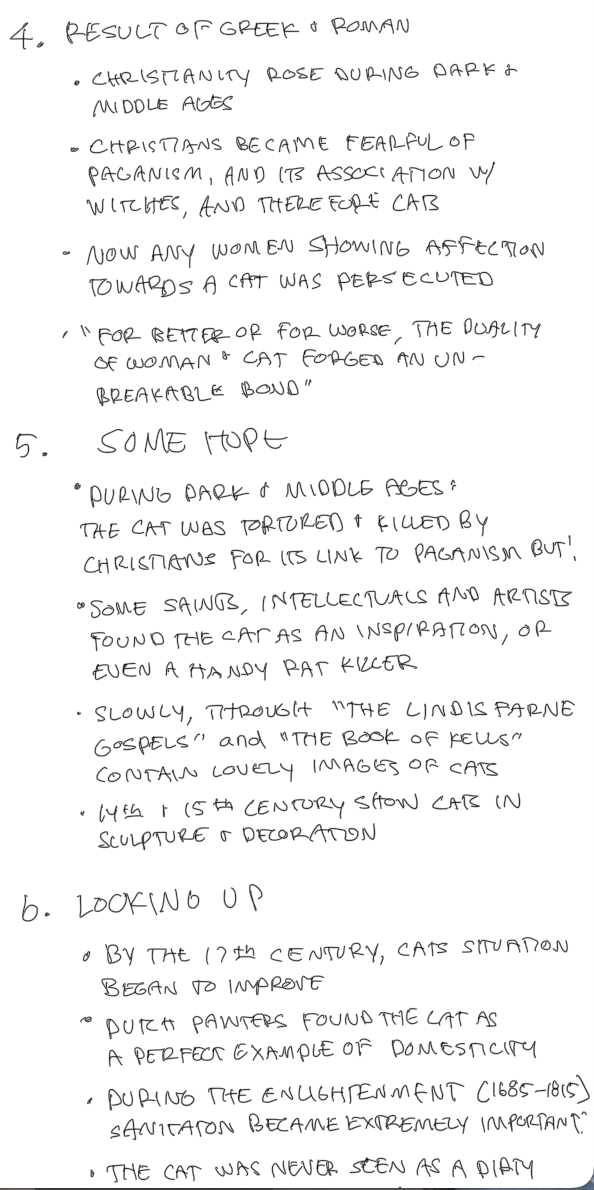 4. RESULT OF GREEK & ROMAN
• CHRISTIANITY ROSE DURING DARK &
MIDDLE AGES
• CHRISTIANS BECAME FEARFUL OF
PAGANISM, AND ITS ASSOCIATION W/
WITCHES, AND THEREFORE CATS
• NOW ANY WOMEN SHOWING AFFECTION
TOWARDS A CAT WAS PERSECUTED
• "FOR BETTER OR FOR WORSE, THE DUALITY
OF WOMAN & CAT FORGED AN UN-
BREAKABLE BOND"
5. SOME HOPE
• DURING DARK & MIDDLE AGES:
THE CAT WAS TORTURED & KILLED BY
CHRISTIANS FOR ITS LINK TO PAGANISM BUT!
• SOME SAINTS, INTELLECTUALS AND ARTISTS
FOUND THE CAT AS AN INSPIRATION, OR
EVEN A HANDY RAT KILLER
• SLOWLY, THROUGH "THE LINDISFARNE
GOSPELS" and "THE BOOK OF KELLS"
CONTAIN LOVELY IMAGES OF CATS
• 14th & 15th CENTURY SHOW CATS IN
SCULPTURE & DECORATION
6. LOOKING UP
• BY THE 17th CENTURY, CATS SITUATION
BEGAN TO IMPROVE
• DUTCH PAINTERS FOUND THE CAT AS
A PERFECT EXAMPLE OF DOMESTICITY
• DURING THE ENLIGHTENMENT (1685-1815)
SANITATON BECAME EXTREMELY IMPORTANT.
• THE CAT WAS NEVER SEEN AS A DIRTY